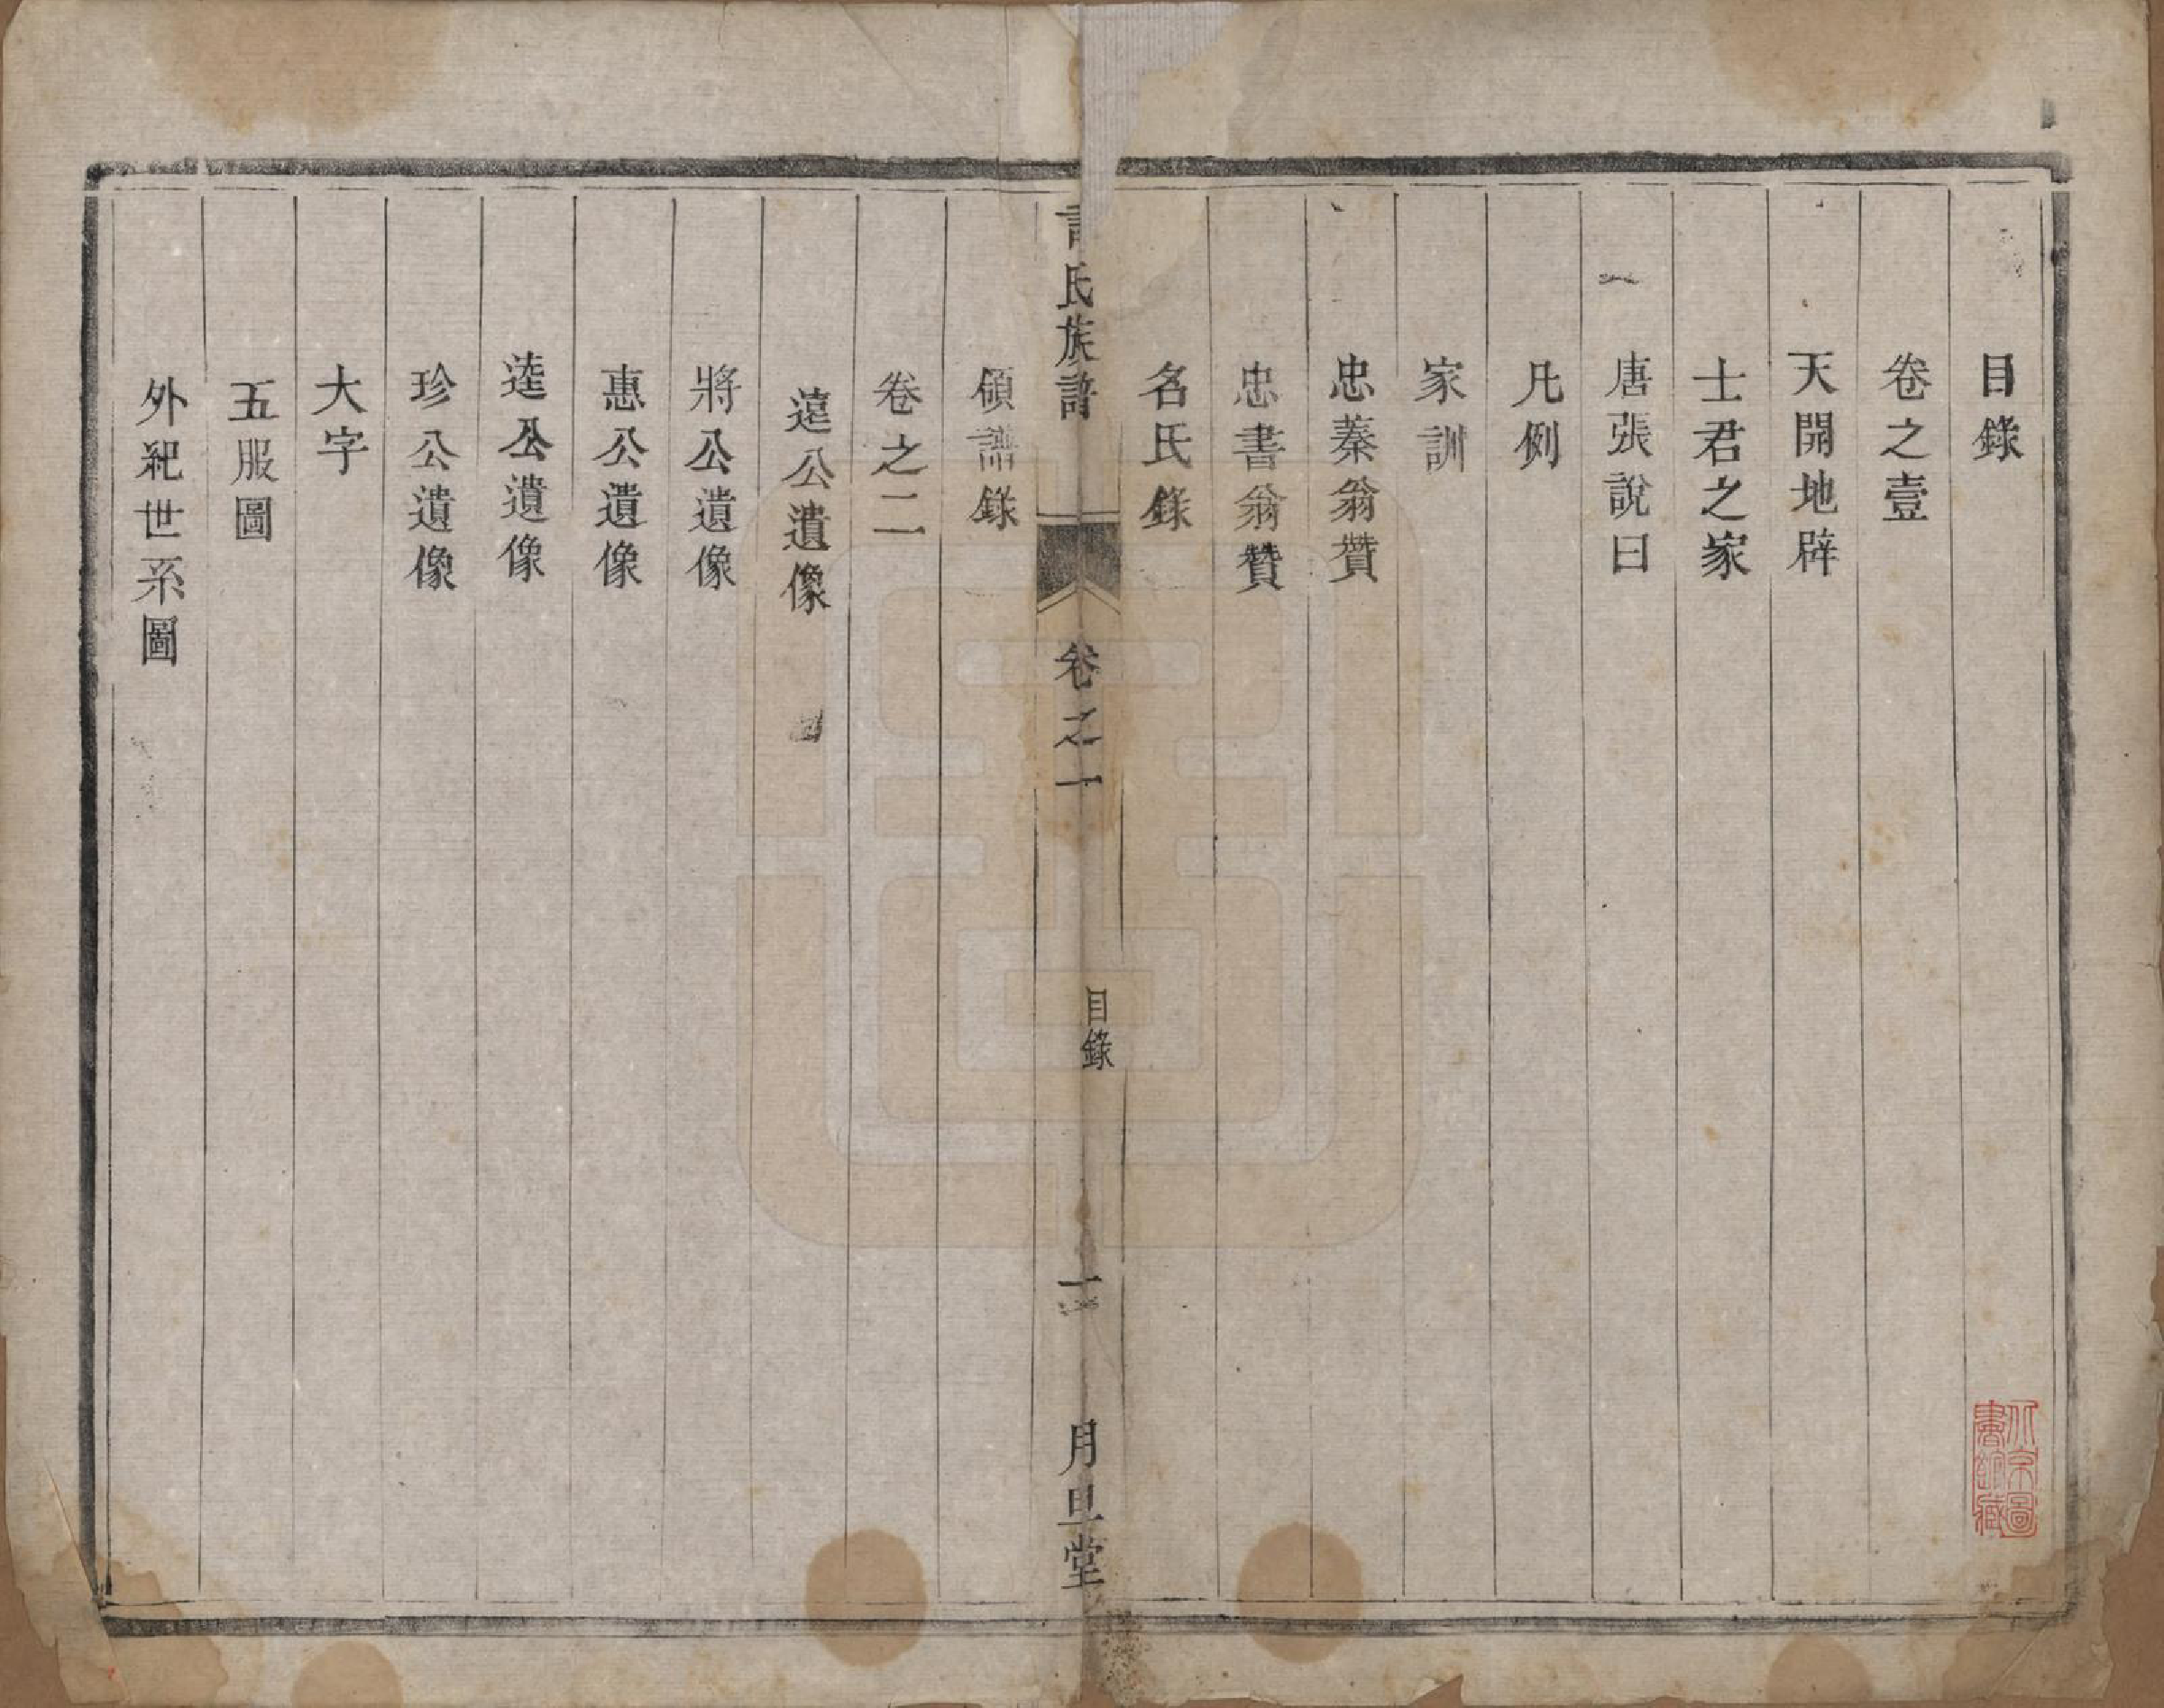 目錄
卷之壹
天開地辟
士君之家
唐張說曰
凡例
家訓
忠蓁翁贊
忠書翁贊
名氏錄
氏族譜
卷之一
目錄
一
月旦堂
領譜錄
卷之二
遠公遺像
將公遺像
惠公遺像
逵公遺像
珍公遺像
大字
五服圖
外紀世系圖